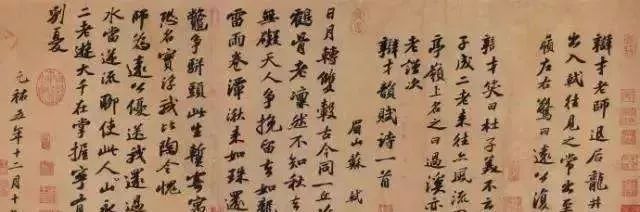 辯才老師退居龍井
出入軾往見之常出至
嶺左右驚曰遠公復
辯才笑曰杜子美不云
子成二老來往亦風流
亭嶺上名之曰過溪亦
老謹次
辯才韻賦詩一首
眉山蘇軾
日月轉雙轂古今同一丘
鶴骨老凜然不知秋去
無礙天人爭挽留去如龍
雷雨卷潭湫來如珠還
鱉爭駢頭此生暫寄寓
恐名實浮我比陶令愧
師為遠公優送我還過
水當逆流聊使此人山永
二老遊大千在掌握寧有
別憂
元祐五年十二月十